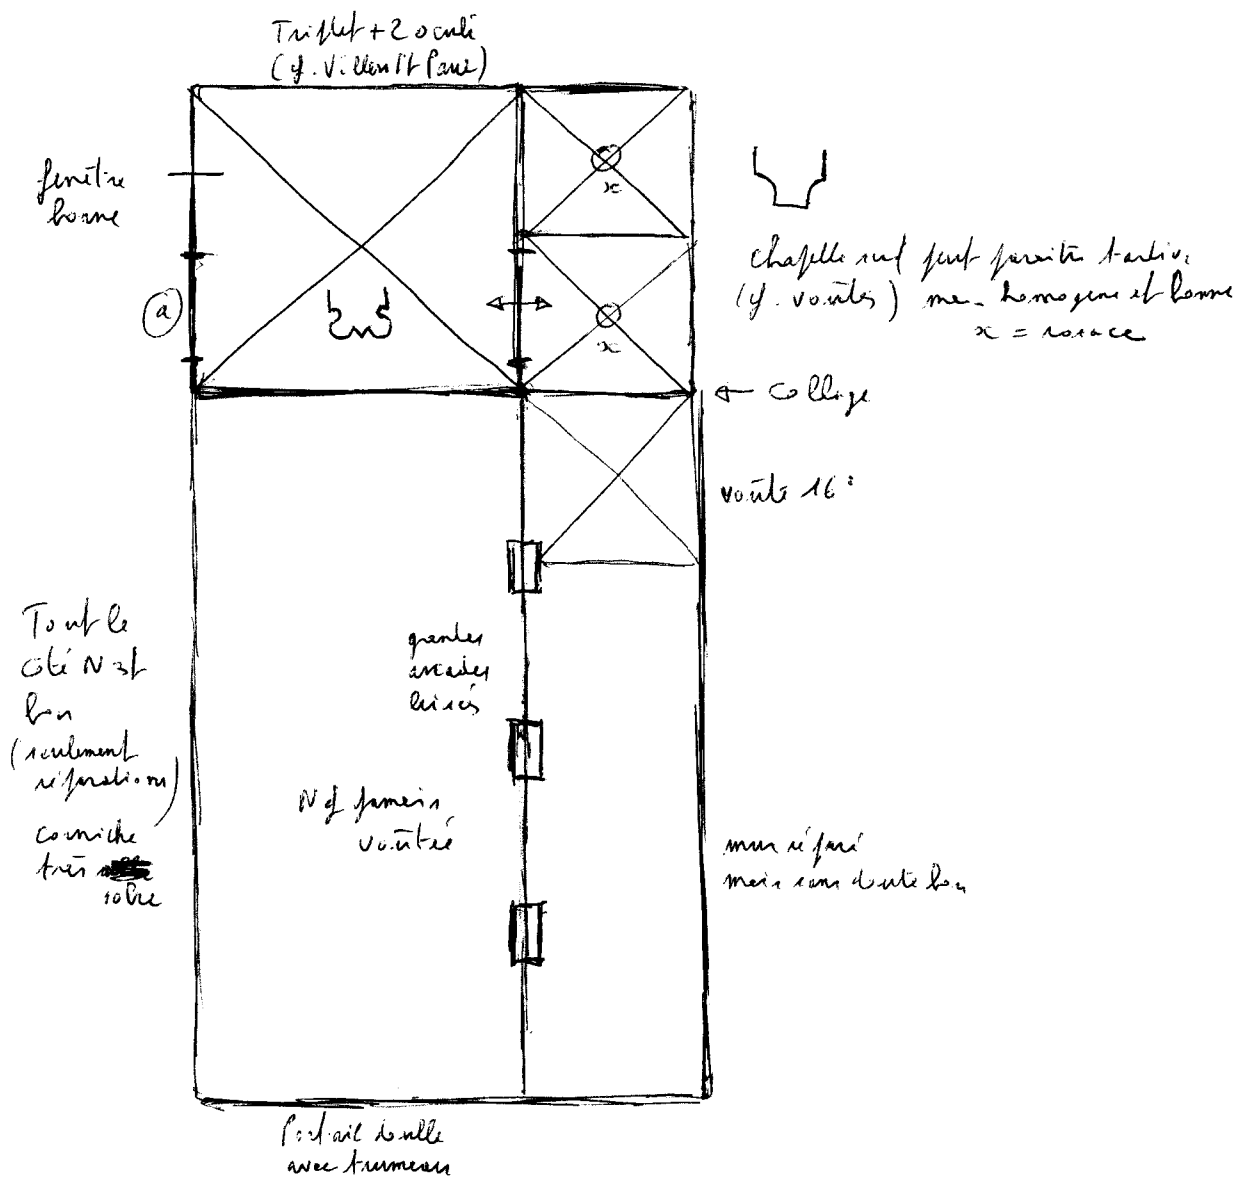 Triplet + 2 oculi
(cf. Villen St Paul)
fenêtre
bonne
a
x
x
chapelle sud peut paraître tardive
(cf. voûtes) mais homogène et bonne
x = rosace
← collage
voûte 16e
Tout le
côté N est
bon
(seulement
réparations)
corniche
très
sobre
grandes
arcades
brisées
Nef jamais
voûtée
mur réparé
mais sans doute bon
Portail double
avec trumeau